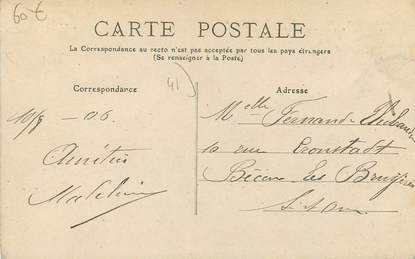 60€
CARTE POSTALE
La Correspondance au recto n'est pas acceptée par tous les pays étrangers
(Se renseigner à la Poste)
41
Correspondance
Adresse
10/8 - 06.
Amitiés
Madeleine
Melle Fernande
10 rue Cronstadt
Bécon les Bruyères